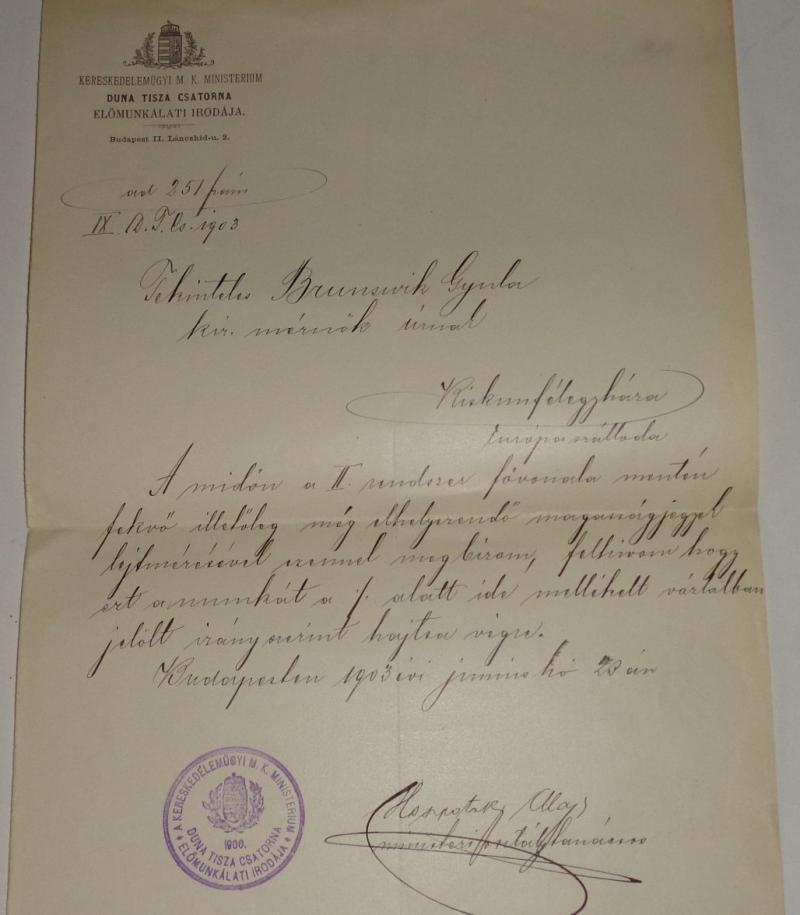 KERESKEDELEMÜGYI M. K. MINISTERIUM
DUNA TISZA CSATORNA
ELŐMUNKÁLATI IRODÁJA.
Budapest II. Lánczhid-u. 2.
ad 251 / szám
IX. D. T. Cs. 1903
Tekintetes Brunswik Gyula
kir. mérnök úrnal
Kiskunfélegyháza
Európa szálloda
A midőn a II. rendszer fővonala mentén
fekvő illetőleg még elhelyezendő magasságjegyek
lejtmérésével ezennel megbizom, felhivom hogy
ezt a munkát a /. alatt ide mellékelt vázlatban
jelölt irány szerint hajtsa végre.
Budapesten 1903 évi junius hó 23 án
ministeri osztálytanácsos
A KERESKEDELEMÜGYI M. K. MINISTERIUM
1900.
DUNA TISZA CSATORNA
ELŐMUNKÁLATI IRODÁJA